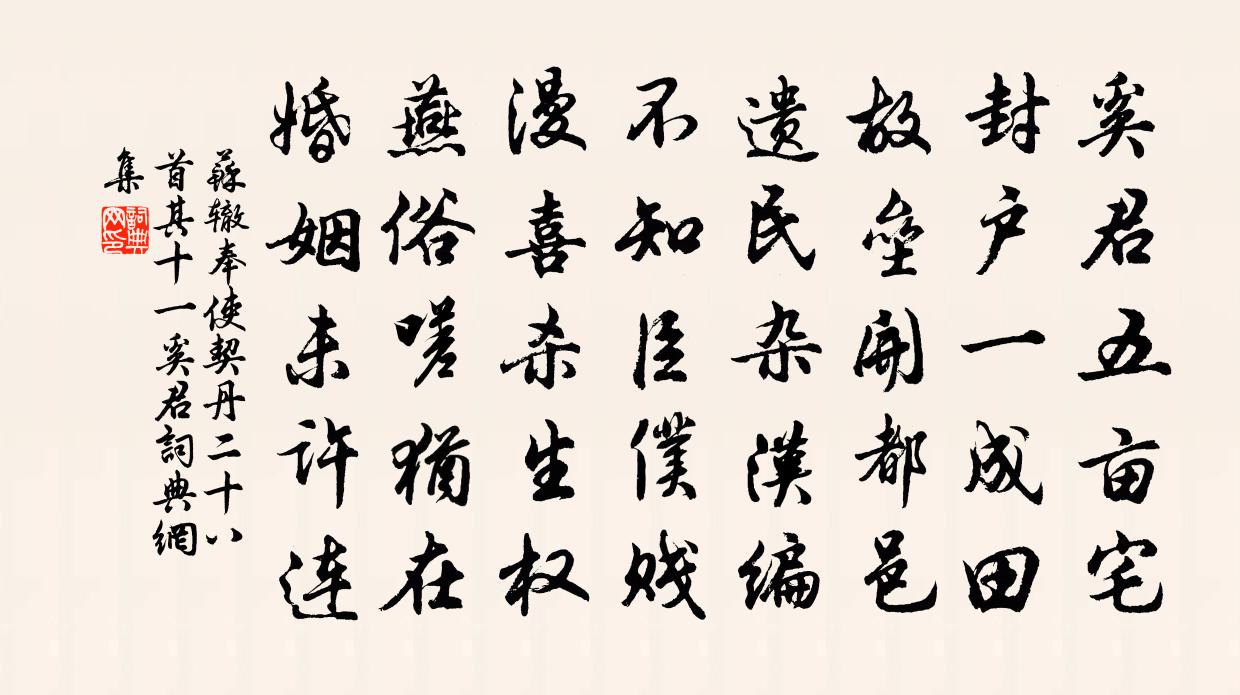 奚君五亩宅
封户一成田
故垒開都邑
遗民杂漢编
不知臣僕贱
漫喜杀生权
燕俗嗟猶在
婚姻未许连
蘇辙奉使契丹二十八
首其十一奚君詞典網
集
詞典网印